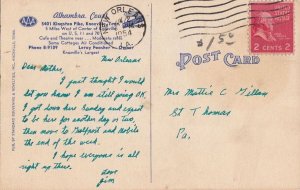 Alhambra Court
5401 Kingston Pike, Knoxville
5 Miles West of Center of
on U.S. 11 and 70
Cafe and Theatre near — Moderate rates
Some Cottages Air Conditioned
Phone 8-9109 Leroy Owner
Knoxville's Largest
NEW ORLEANS
1954
LA.
2 CENTS 2
POST CARD
New Orleans
Dear Mother,
I just thought I would
let you know I am still going OK.
I got down here Sunday and expect
to be here for another day or two,
then move to Gulfport and Mobile
the end of the week.
I hope everyone is all
right up there.
Love
Jim
Mrs. Mattie C. Millen
St Thomas
Pa.